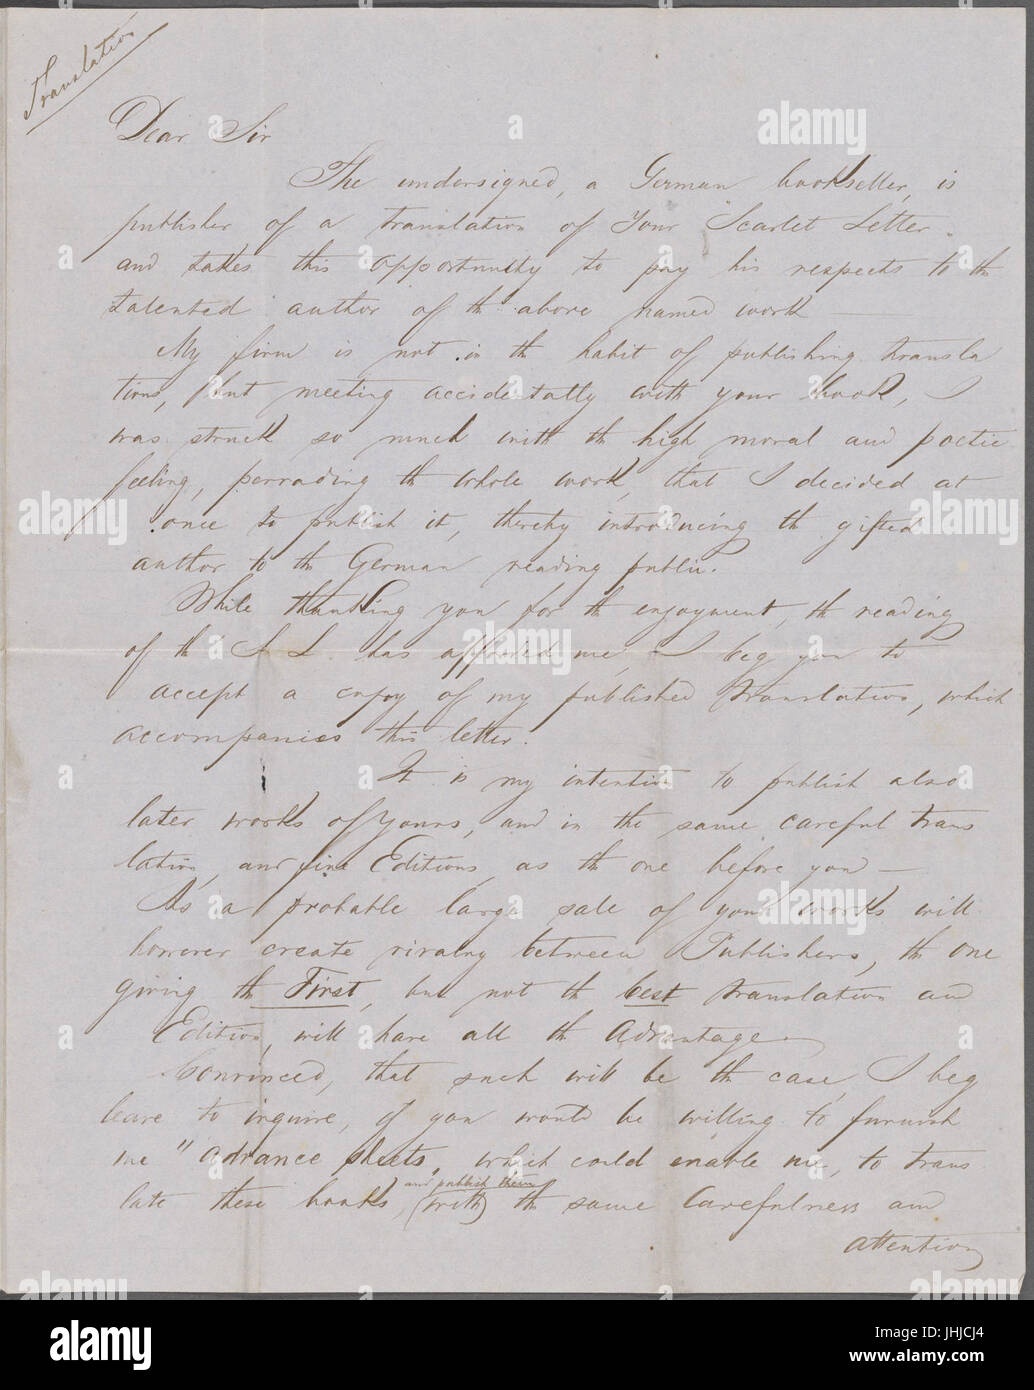 Translation
Dear Sir
The undersigned, a German bookseller, is
publisher of a translation of Your "Scarlet Letter"
and takes this opportunity to pay his respects to th
talented author of th above named work —
My firm is not in th habit of publishing transla
tions, but meeting accidentally with your book, I
was struck so much with th high moral and poetic
feeling, pervading th whole work, that I decided at
once to publish it, thereby introducing th gifted
author to th German reading public.
While thanking you for th enjoyment, th reading
of th S. L. has afforded me, I beg you to
accept a copy of my published translation, which
accompanies this letter.
It is my intention to publish also
later works of Yours, and in the same careful trans
lation, and fine Editions, as th one before you —
As a probable large sale of your works will
however create rivalry between Publishers, th one
giving th First, but not th best translation and
Edition, will have all th Advantage —
Convinced, that such will be th case, I beg
leave to inquire, if you would be willing to furnish
me "advance sheets, which could enable me, to trans
and publish them
late these books, (with) th same Carefulness and
attention
alamy stock photo
alamy
Image ID: JHJCJ4
www.alamy.com